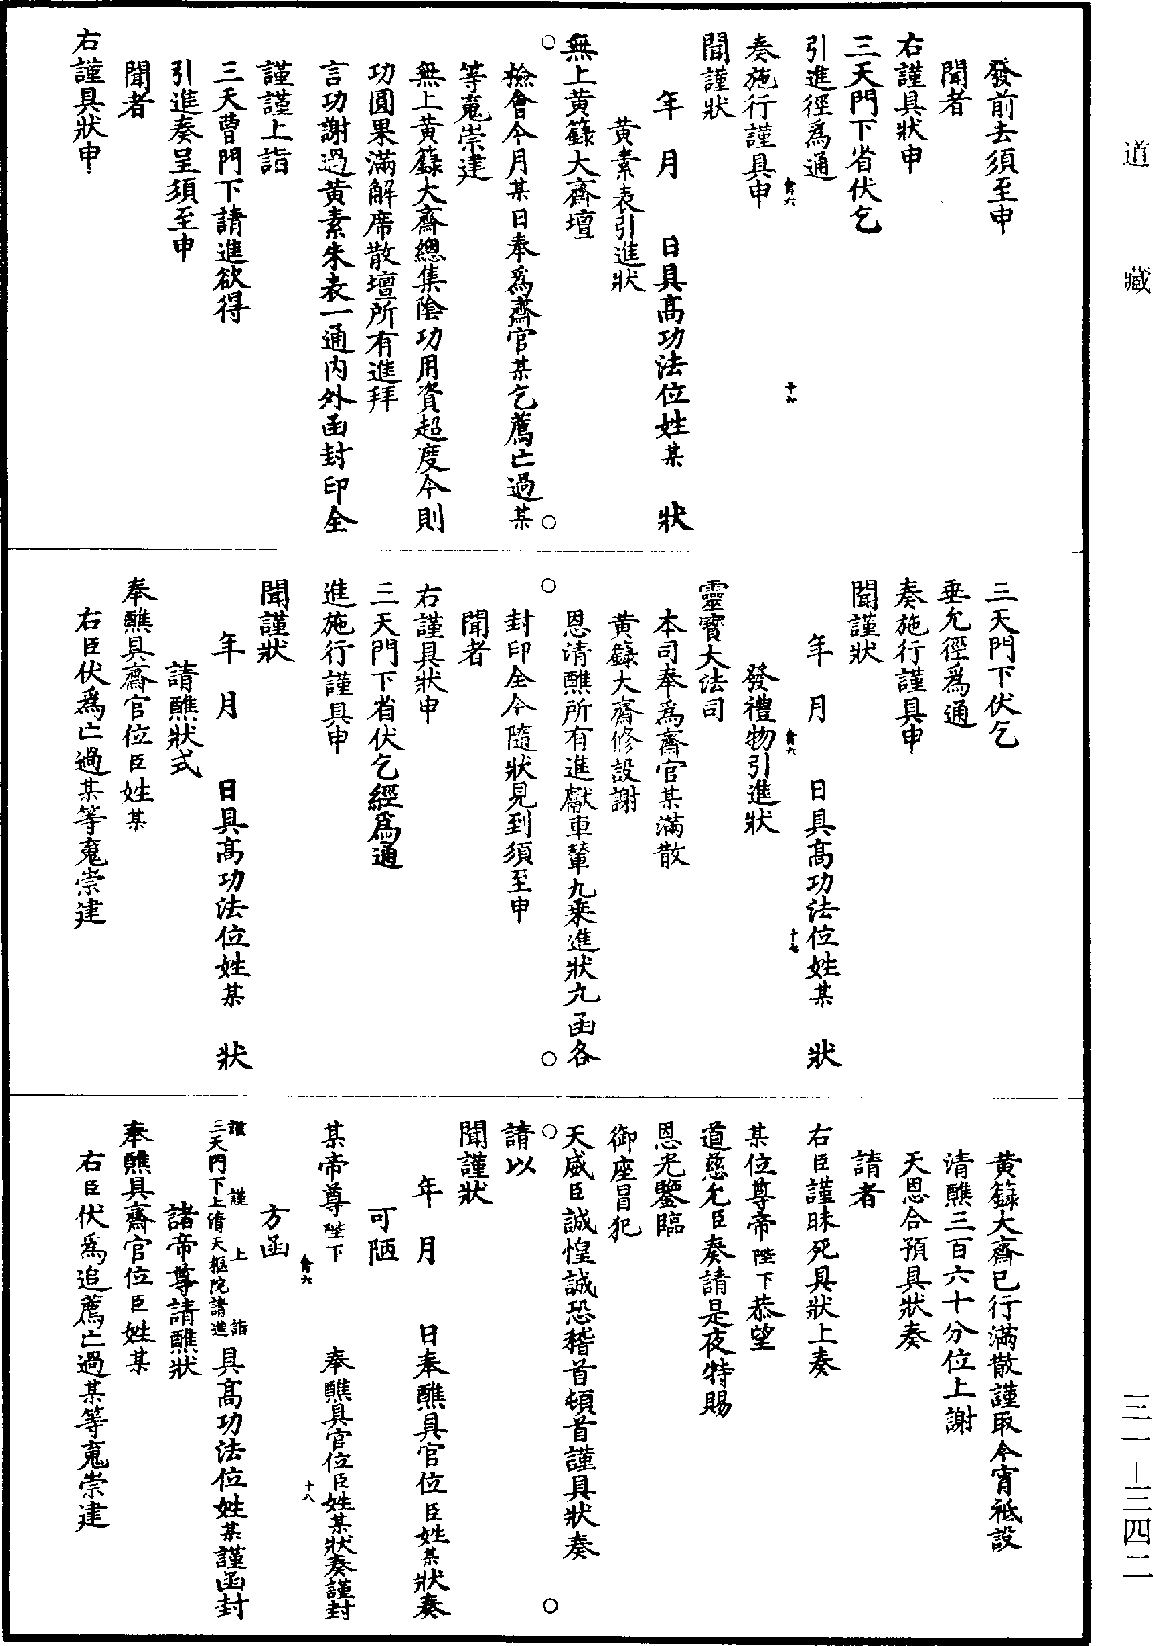 道藏
三一—三四二
發前去須至申
聞者
右謹具狀申
三天門下省伏乞
引進徑爲通
奏施行謹具申
聞謹狀
年月　日具高功法位姓某　狀
黃素表引進狀
無上黃籙大齋壇
檢會今月某日奉爲齋官某乞薦亡過某
等䰟崇建
無上黃籙大齋總集陰功用資超度今則
功圓果滿解席散壇所有進拜
言功謝過黃素朱表一通內外函封印全
謹謹上詣
三天曹門下請進欲得
引進奏呈須至申
聞者
右謹具狀申
三天門下伏乞
垂允徑爲通
奏施行謹具申
聞謹狀
年月　日具高功法位姓某　狀
發禮物引進狀
靈寶大法司
本司奉爲齋官某滿散
黃籙大齋修設謝
恩清醮所有進獻車輦九乘進狀九函各
封印全今隨狀見到須至申
聞者
右謹具狀申
三天門下省伏乞經爲通
進施行謹具申
聞謹狀
年月　日具高功法位姓某　狀
請醮狀式
奉醮具齋官位臣姓某
右臣伏爲亡過某等䰟崇建
黃籙大齋已行滿散謹取今宵祗設
清醮三百六十分位上謝
天恩合預具狀奏
請者
右臣謹昧死具狀上奏
某位尊帝陛下恭望
道慈允臣奏請是夜特賜
恩光鑒臨
御座冒犯
天威臣誠惶誠恐稽首頓首謹具狀奏
請以
聞謹狀
年月　日奉醮具官位臣姓某狀奏
可陋
某帝尊陛下　奉醮具官位臣姓某狀奏謹封
方函
謹謹上詣
三天門下上清天樞院請進　具高功法位姓某謹函封
諸帝尊請醮狀
奉醮具齋官位臣姓某
右臣伏爲追薦亡過某等䰟崇建